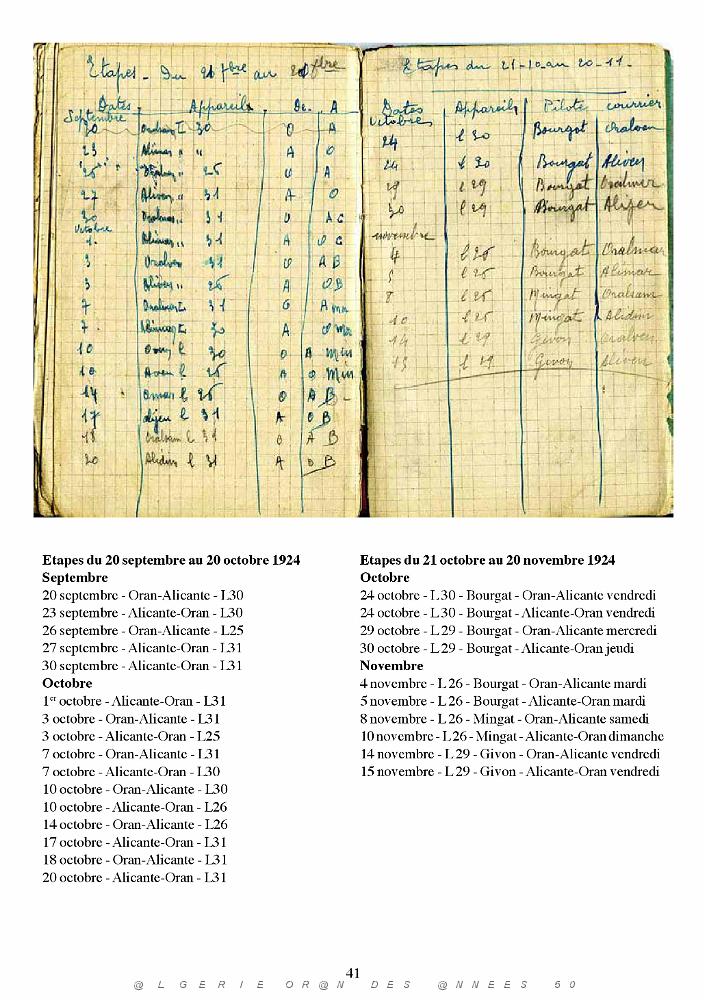 Etapes - Du 21 7bre au 20 8bre
Dates Appareils De A
Septembre
20 I 30 O A
23 Alimar " " A O
26 25 O A
27 " 31 A O
30 " 31 O A C
octobre
1. " 31 A O C
3 31 O A B
3 " 25 A O B
7 I 31 O A
7 I 30 A O
10 l 30 O A Min
10 l A O Min
14 l 26 O A B
17 l 31 A O B
18 l 31 O A B
20 l 31 A O B
Etapes du 21-10 au 20-11-
Dates Appareils Pilote courrier
octobre
24 l 30 Bourgat
24 l 30 Bourgat
29 l 29 Bourgat
30 l 29 Bourgat
novembre
4 l 26 Bourgat
5 l 26 Bourgat Alimar
8 l 26 Mingat Oralsam
10 l 26 Mingat Alidim
14 l 29 Givon Oralven
15 l 29 Givon Aliven
Etapes du 20 septembre au 20 octobre 1924
Septembre
20 septembre - Oran-Alicante - L30
23 septembre - Alicante-Oran - L30
26 septembre - Oran-Alicante - L25
27 septembre - Alicante-Oran - L31
30 septembre - Alicante-Oran - L31
Octobre
1er octobre - Alicante-Oran - L31
3 octobre - Oran-Alicante - L31
3 octobre - Alicante-Oran - L25
7 octobre - Oran-Alicante - L31
7 octobre - Alicante-Oran - L30
10 octobre - Oran-Alicante - L30
10 octobre - Alicante-Oran - L26
14 octobre - Oran-Alicante - L26
17 octobre - Alicante-Oran - L31
18 octobre - Oran-Alicante - L31
20 octobre - Alicante-Oran - L31
Etapes du 21 octobre au 20 novembre 1924
Octobre
24 octobre - L30 - Bourgat - Oran-Alicante vendredi
24 octobre - L30 - Bourgat - Alicante-Oran vendredi
29 octobre - L29 - Bourgat - Oran-Alicante mercredi
30 octobre - L29 - Bourgat - Alicante-Oran jeudi
Novembre
4 novembre - L26 - Bourgat - Oran-Alicante mardi
5 novembre - L26 - Bourgat - Alicante-Oran mardi
8 novembre - L26 - Mingat - Oran-Alicante samedi
10 novembre - L26 - Mingat - Alicante-Oran dimanche
14 novembre - L29 - Givon - Oran-Alicante vendredi
15 novembre - L29 - Givon - Alicante-Oran vendredi
41
@ L G E R I E O R @ N D E S @ N N E E S 5 0